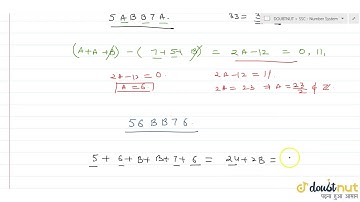 5ABB7A.
33 = 3
DOUBTNUT > SSC : Number System
(A+A+B) - ( 7+5+B) = 2A-12 = 0, 11,
2A-12 = 0. 2A-12 = 11.
A = 6 2A = 23 ⇒ A = 23/2 ∉ Z
56BB76.
5 + 6 + B + B + 7 + 6 = 24 + 2B =
doubtnut
पढ़ना हुआ आसान